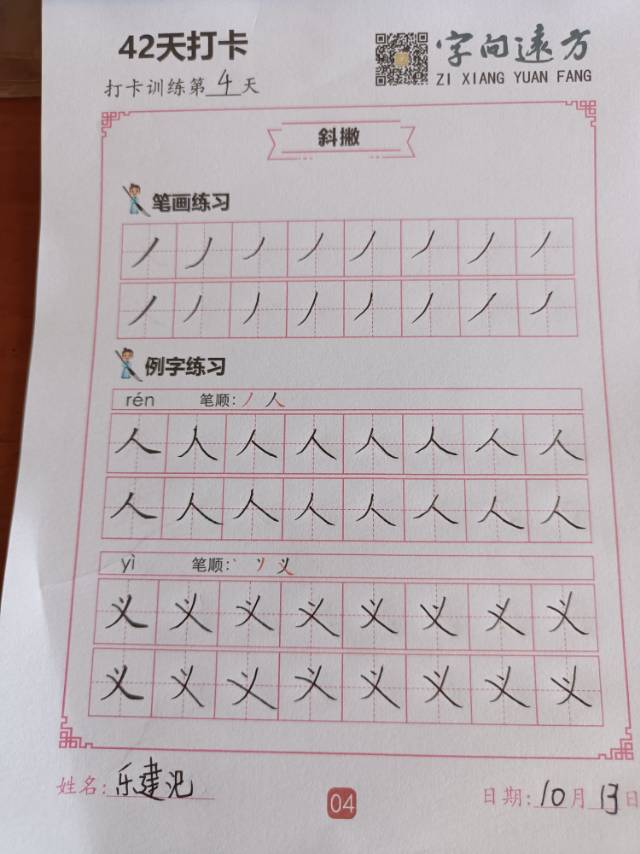 42天打卡
字向远方
打卡训练第4天
ZI XIANG YUAN FANG
斜撇
笔画练习
丿丿丿丿丿丿丿丿
丿丿丿丿丿丿丿丿
例字练习
rén 笔顺:丿人
人人人人人人人人
人人人人人人人人
yì 笔顺:丶丷义
义义义义义义义义
义义义义义义义义
姓名:乐建
04
日期:10月13日